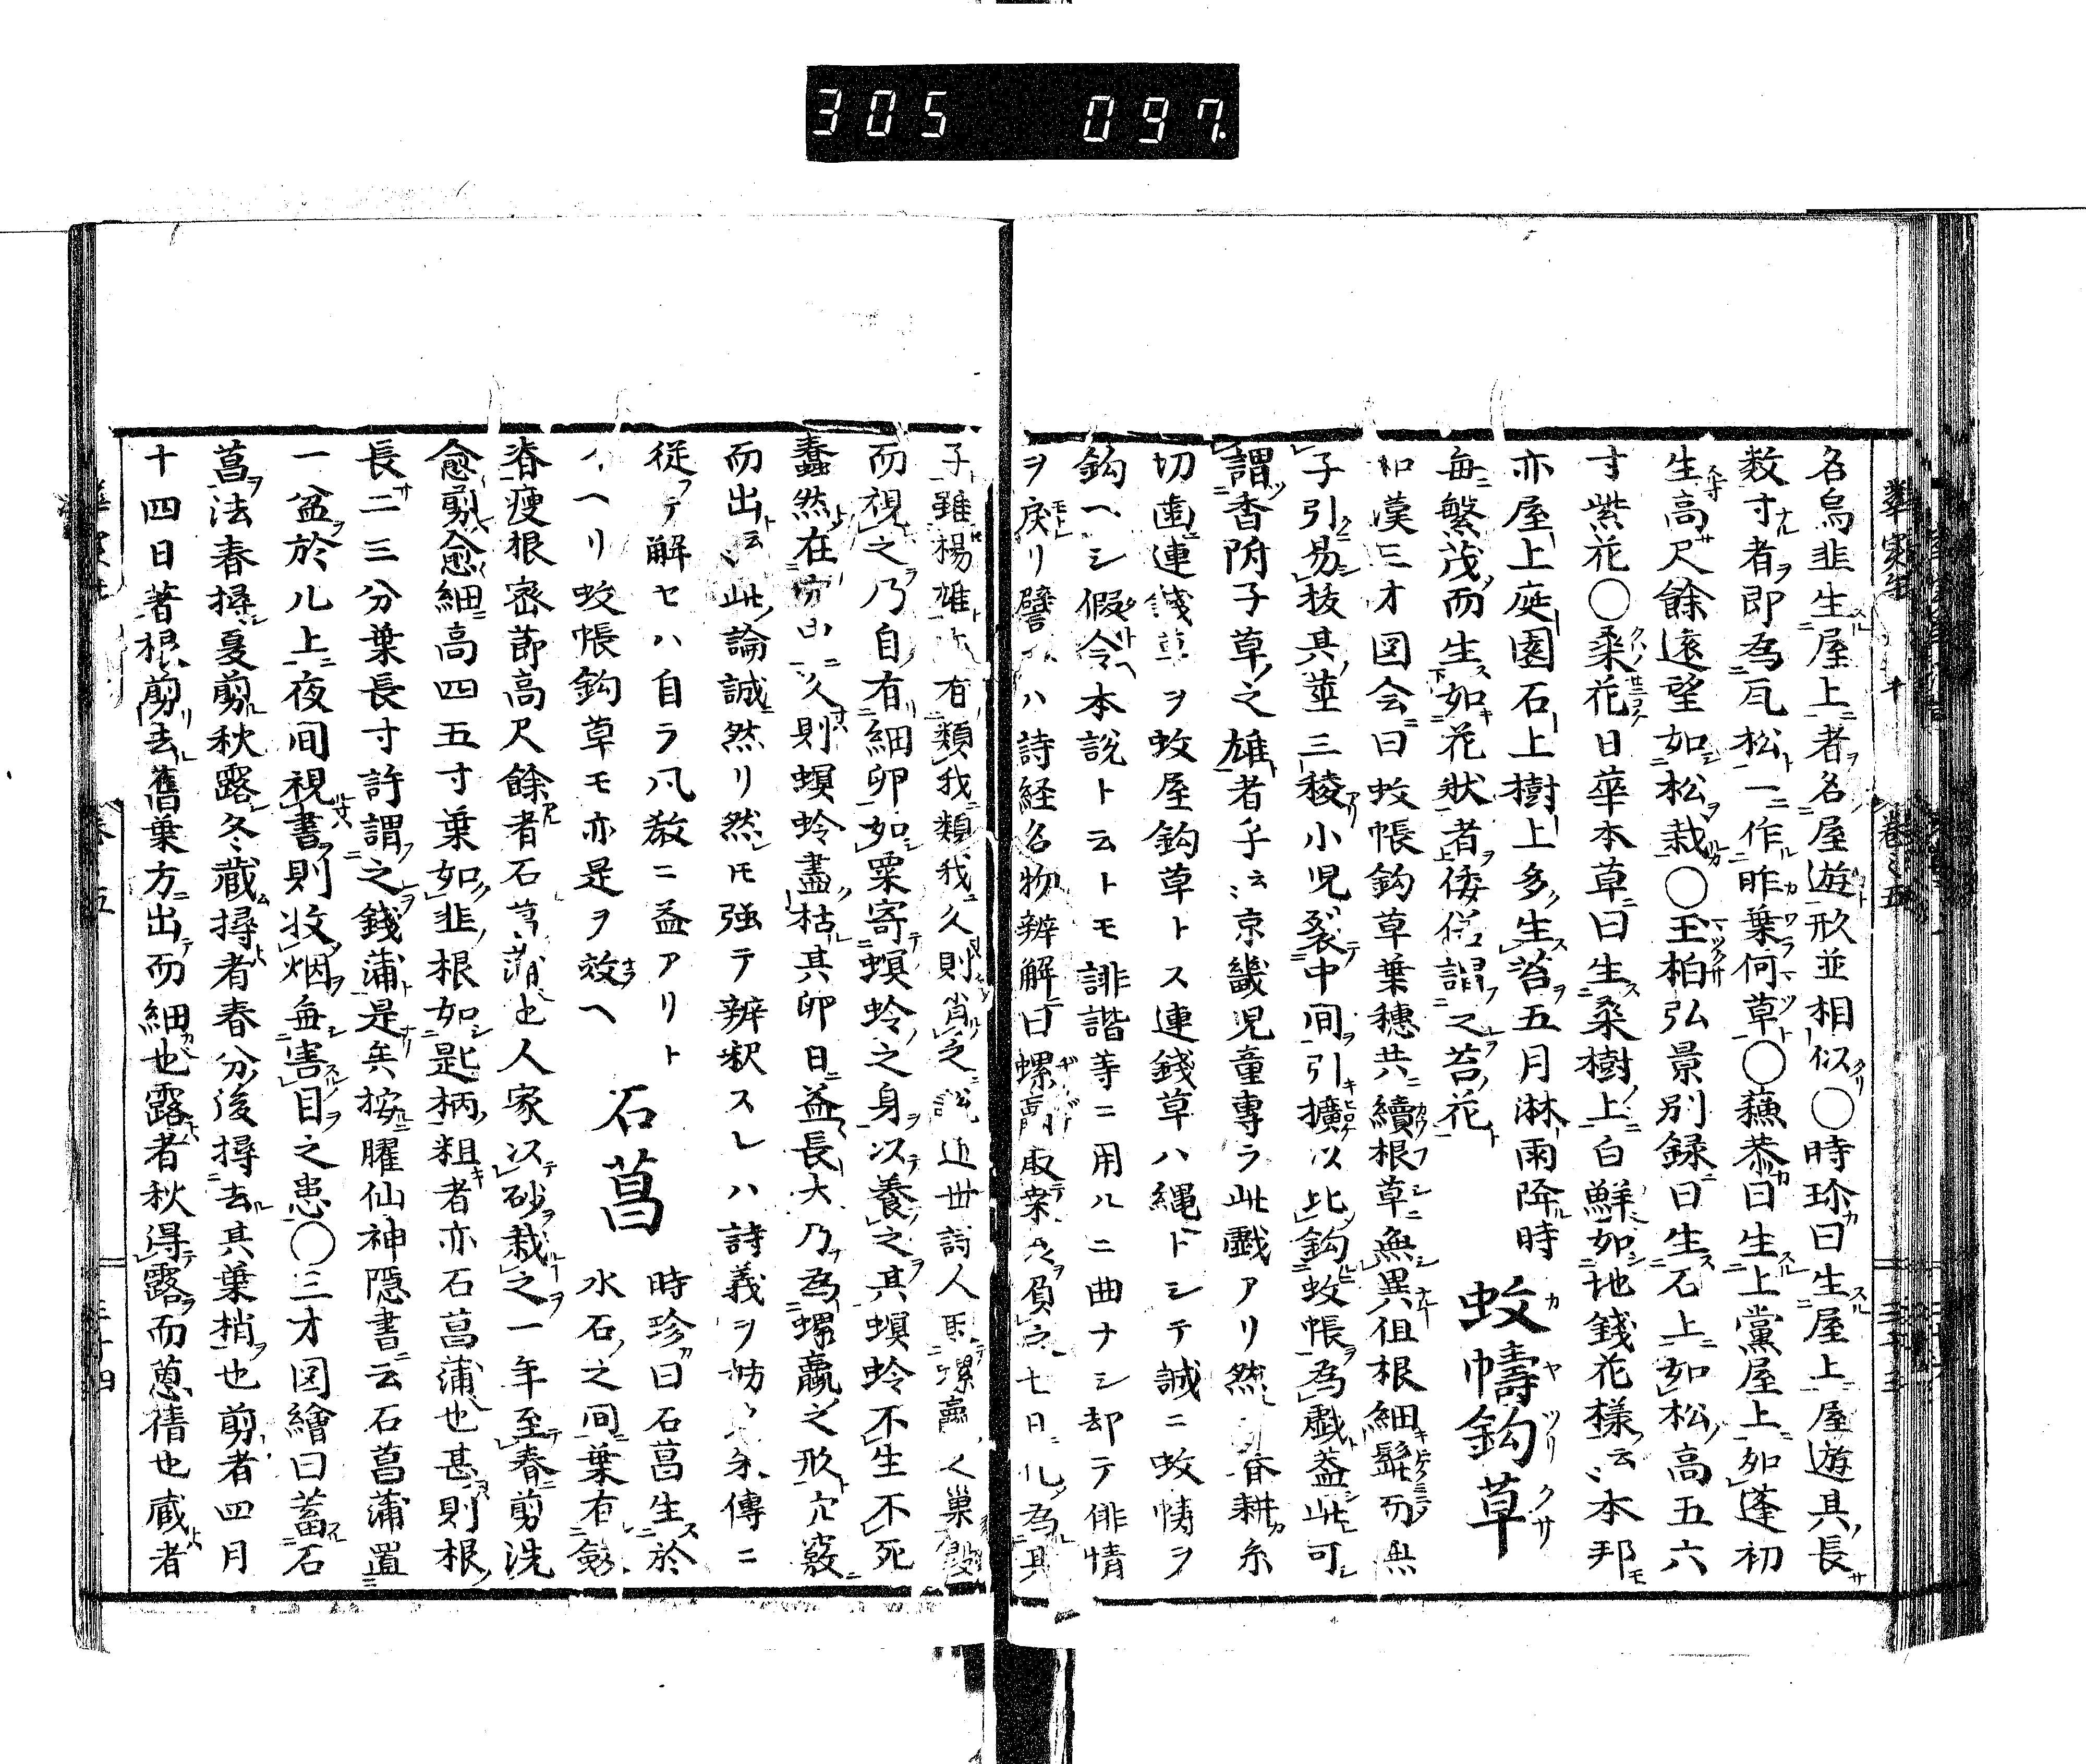 305 097.
名烏韭生屋上者名屋遊形並相似〇時珍曰生屋上屋遊其長
数寸者即為瓦松一作昨葉何草〇蘓恭曰生上黨屋上如蓬初
生高尺餘遠望如松栽〇玉柏弘景別録曰生石上如松高五六
寸紫花〇桒花日華本草曰生桑樹上白鮮如地錢花樣云〻本邦
亦屋上庭園石上樹上多生苔五月淋雨降時
毎繁茂而生如花状者倭俗謂之苔花
蚊幬鈎草
カヤツリクサ
和漢三才図会曰蚊帳鈎草葉穗共續根草無異但根細髭而無
子引易抜其莖三稜小児裂中間引擴以比鈎蚊帳為戲蓋此可
謂香附子草之雄者乎云〻京畿児童専ラ此戲アリ然
切歯連錢草ヲ蚊屋鈎草トス連錢草ハ縄トシテ誠ニ蚊幬ヲ
鈎ヘシ假令本説ト云トモ誹諧等ニ用ルニ曲ナシ却テ俳情
ヲ戻リ譬ハ詩経名物辨解曰螺蠃取桒虫負之七日化為其
子雖楊雄有類我類我久則肖之説近世詩人取螺蠃之巣毀
而視之乃自有細卵如粟寄螟蛉之身以養之其螟蛉不生不死
蠢然在穴中久則螟蛉盡枯其卵日益長大乃為螺蠃之形穴竅
而出云〻此論誠然リ然𪜈強テ辨釈スレハ詩義ヲ妨朱傳ニ
従テ解セハ自ラ凡教ニ益アリト
イヘリ蚊帳鈎草モ亦是ヲ效ヘ
石菖
時珍曰石菖生於
水石之间葉有劔
脊瘦根宻莭高尺餘者石菖蒲也人家以砂栽之一年至春剪洗
愈剪愈細高四五寸葉如韭根如匙柄粗者亦石菖蒲也甚則根
長二三分葉長寸許謂之錢蒲是矣按臞仙神隠書云石菖蒲置
一盆於几上夜间視書則收烟無害目之患〇三才図繪曰蓄石
菖法春撏夏剪秋露冬藏撏者春分後撏去其葉梢也剪者四月
十四日著根剪去舊葉方出而細也露者秋得露而蔥蒨也蔵者